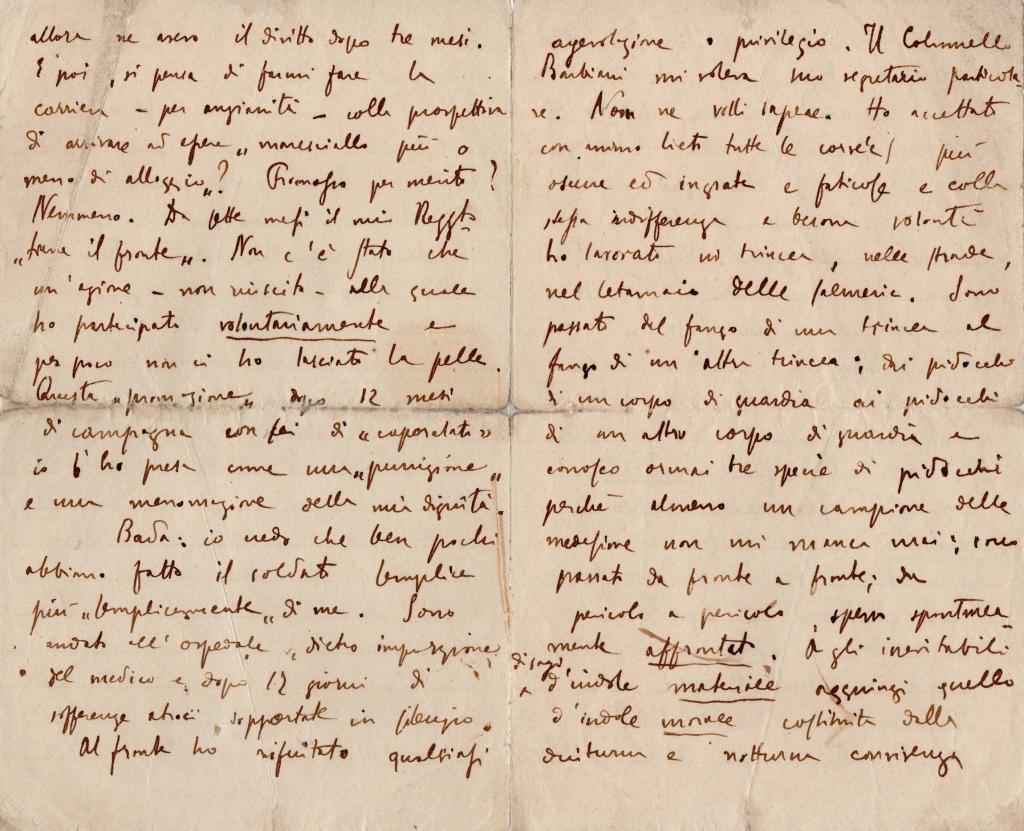 allora ne avevo il diritto dopo tre mesi.
E poi, si pensa di farmi fare la
carriera – per anzianità – colla prospettiva
di arrivare ad essere „maresciallo più o
meno di alloggio„? Promosso per merito?
Nemmeno. Da sette mesi il mio Reggto
„tiene il fronte„. Non c'è stato che
un'azione – non riuscita – alla quale
ho partecipato volontariamente e
per poco non ci ho lasciato la pelle.
Questa „promozione„ dopo 12 mesi
di campagna con sei di «caporalato»
io l'ho presa come una „punizione„
e una menomazione della mia dignità.
Bada: io credo che ben pochi
abbiamo fatto il soldato semplice
più „semplicemente„ di me. Sono
andato all'ospedale, dietro imposizione
del medico e dopo 12 giorni di
sofferenze atroci sopportate in silenzio.
Al fronte ho rifiutato qualsiasi
agevolazione o privilegio. Il Colonnello
Barbiani mi voleva suo segretario particola
re. Non ne volli sapere. Ho accettato
con animo lieto tutte le corvées più
oscure ed ingrate e faticose e colla
stessa indifferenza e buona volontà
ho lavorato in trincea, nelle strade,
nel letamaio delle salmerie. Sono
passato dal fango di una trincea al
fango di un'altra trincea; dai pidocchi
di un corpo di guardia ai pidocchi
di un altro corpo di guardia e
conosco ormai tre specie di pidocchi
perché almeno un campione delle
medesime non mi manca mai; sono
passato da fronte a fronte; da
pericolo a pericolo, spesso spontanea
mente affrontato. Agli inevitabili
disagi d'indole materiale aggiungi quello
d'indole morale costituito dalla
diuturna e notturna convivenza